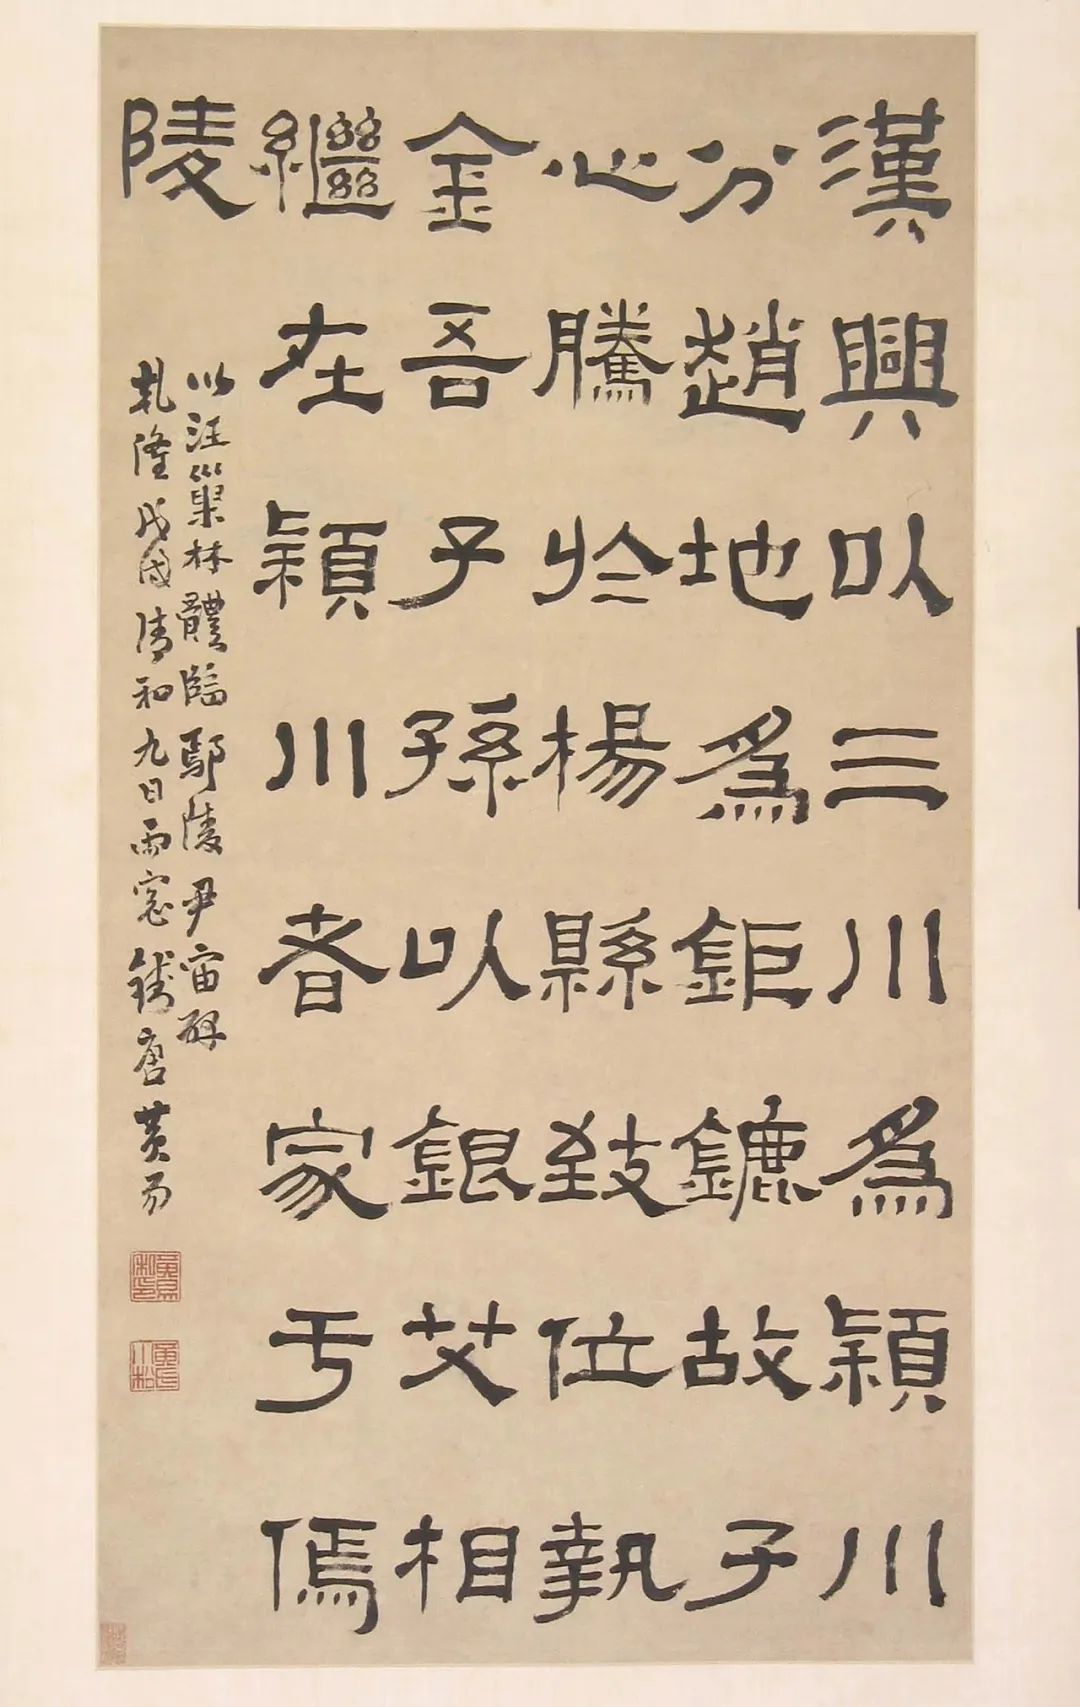 漢興以三川爲潁川
分趙地爲鉅鏕故子
心騰於楊縣致位執
金吾子孫以銀艾相
繼在潁川者家于傿
陵
以汪巢林體臨鄢陵尹宙碑
乹隆戊戌清和九日雨窓錢唐黃易